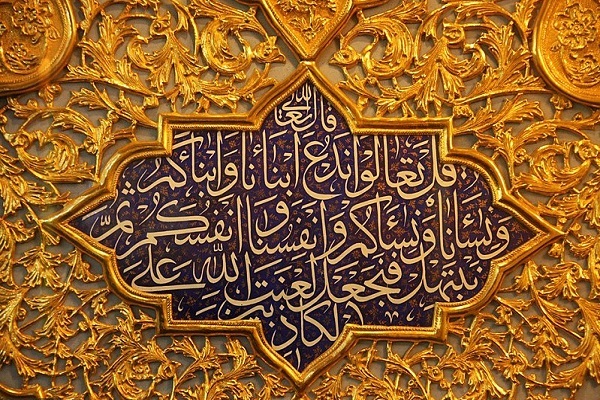 قال الله تعالى
قل تعالوا ندع أبنائنا وأبنائكم
ونسائنا ونسائكم وأنفسنا وأنفسكم ثم
نبتهل فنجعل لعنت الله على
الكاذبين